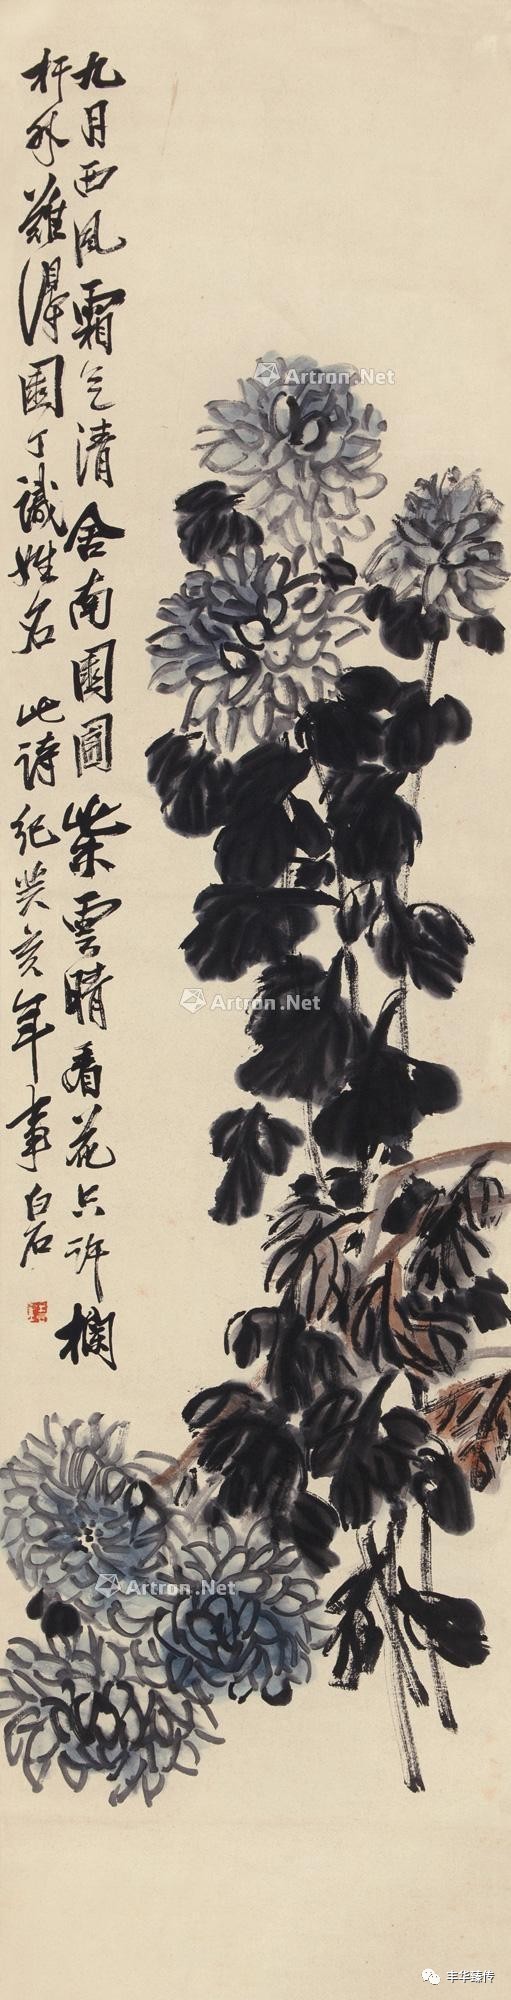 九月西風霜气清舍南園圃紫雲晴看花只許欄
杆外難得園丁識姓名 此詩紀癸亥年事 白石
Artron.Net
Artron.Net
Artron.Net
丰华臻传